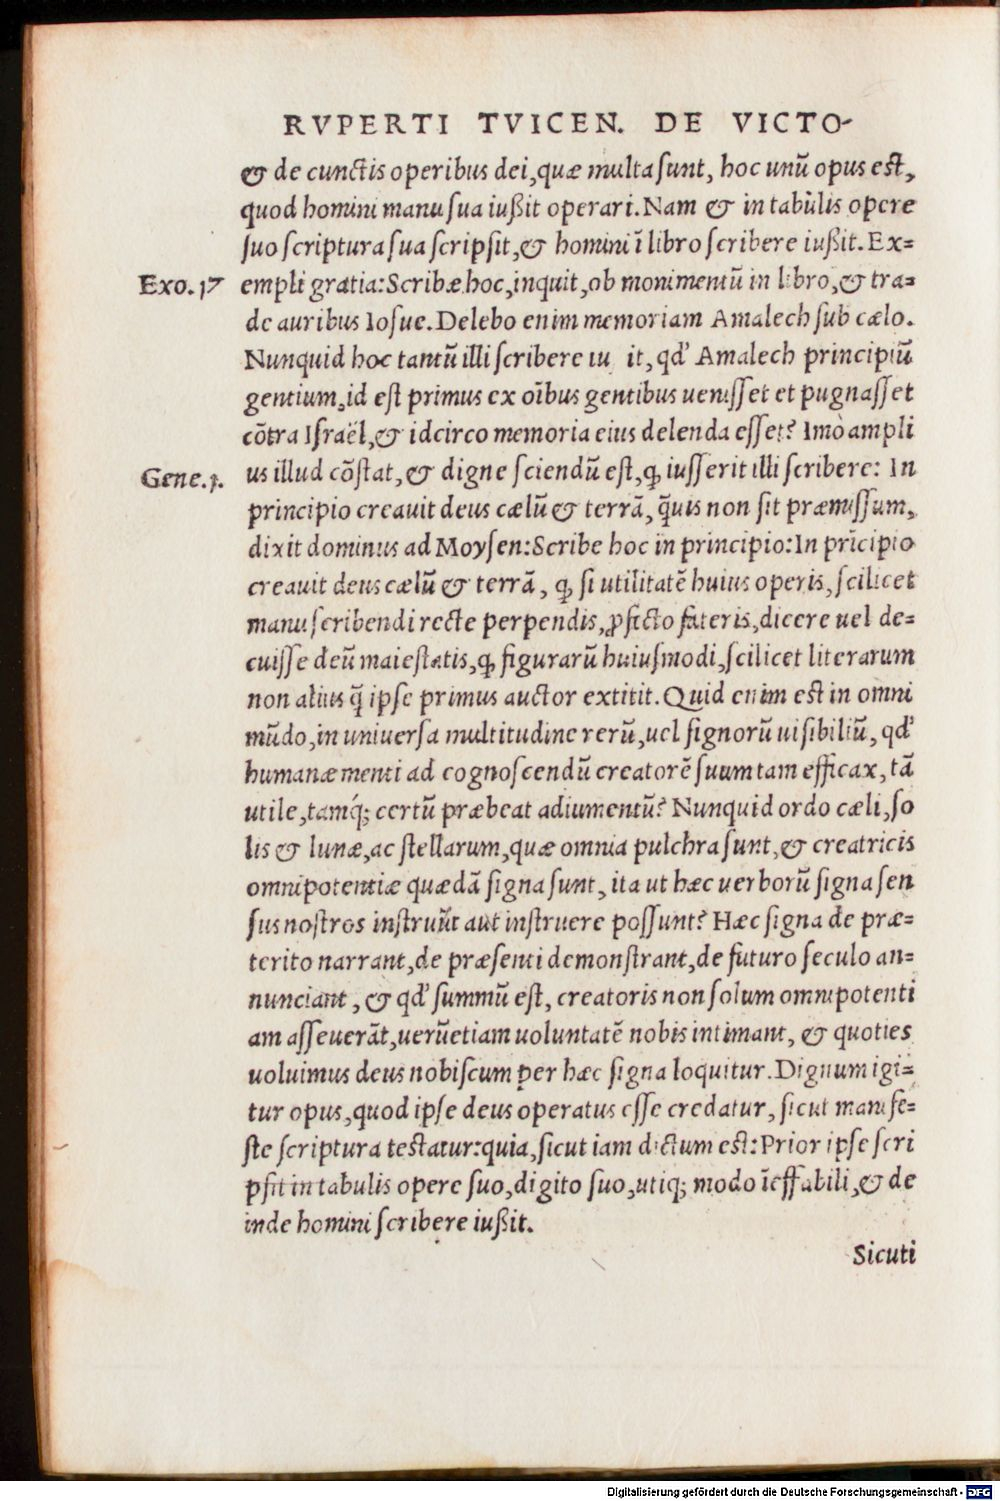 RVPERTI TVICEN. DE VICTO-
& de cunctis operibus dei, quæ multa sunt, hoc unū opus est,
quod homini manu sua iußit operari. Nam & in tabulis opere
suo scriptura sua scripsit, & homini ī libro scribere iußit. Ex=
Exo. 17 empli gratia: Scribæ hoc, inquit, ob monimentū in libro, & tra=
de auribus Iosue. Delebo enim memoriam Amalech sub cælo.
Nunquid hoc tantū illi scribere iu it, qd' Amalech principiū
gentium, id est primus ex oībus gentibus uenisset et pugnasset
cōtra Israël, & idcirco memoria eius delenda esset? Imò ampli
Gene. 1. us illud cōstat, & digne sciendū est, ꝙ iusserit illi scribere: In
principio creauit deus cælū & terrā, q̄uis non sit præmissum,
dixit dominus ad Moysen: Scribe hoc in principio: In prīcipio
creauit deus cælū & terrā, ꝙ si utilitatē huius operis, scilicet
manu scribendi recte perpendis, ꝓfecto fateris, dicere uel de=
cuisse deū maiestatis, ꝙ figurarū huiusmodi, scilicet literarum
non alius q̄ ipse primus auctor extitit. Quid enim est in omni
mūdo, in uniuersa multitudine rerū, uel signorū uisibiliū, qd'
humanæ menti ad cognoscendū creatorē suum tam efficax, tā
utile, tamq́; certū præbeat adiumentū? Nunquid ordo cæli, so
lis & lunæ, ac stellarum, quæ omnia pulchra sunt, & creatricis
omnipotentiæ quædā signa sunt, ita ut hæc uerborū signa sen
sus nostros instruūt aut instruere possunt? Hæc signa de præ=
terito narrant, de præsenti demonstrant, de futuro seculo an=
nunciant, & qd' summū est, creatoris non solum omnipotenti
am asseuerāt, uerūetiam uoluntatē nobis intimant, & quoties
uoluimus deus nobiscum per hæc signa loquitur. Dignum igi=
tur opus, quod ipse deus operatus esse credatur, sicut manife=
ste scriptura testatur: quia, sicut iam dictum est: Prior ipse scri
psit in tabulis opere suo, digito suo, utiq; modo īeffabili, & de
inde homini scribere iußit.
Sicuti
Digitalisierung gefördert durch die Deutsche Forschungsgemeinschaft - DFG